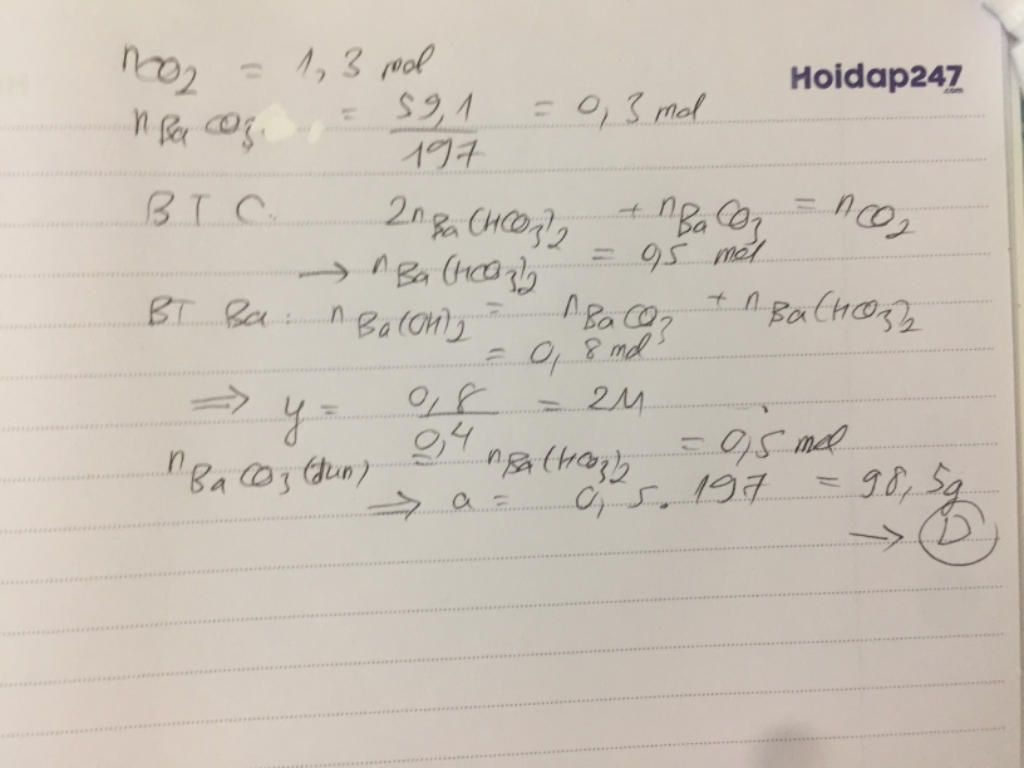 nCO2 = 1,3 mol
Hoidap247
.com
nBaCO3 = 59,1/197 = 0,3 mol
BTC. 2nBa(HCO3)2 + nBaCO3 = nCO2
→ nBa(HCO3)2 = 0,5 mol
BT Ba: nBa(OH)2 = nBaCO3 + nBa(HCO3)2
= 0,8 mol
⇒ y = 0,8/0,4 = 2M
nBaCO3 (đun) = nBa(HCO3)2 = 0,5 mol
⇒ a = 0,5.197 = 98,5g
→ D